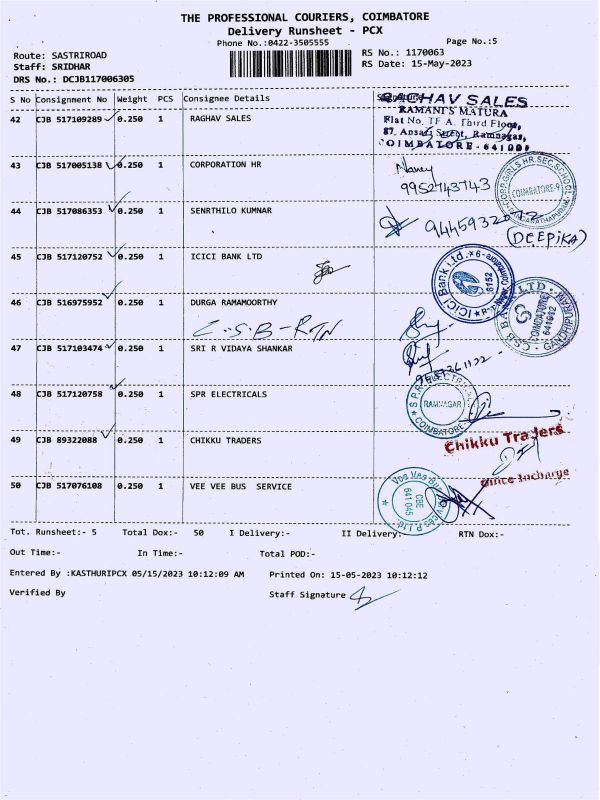 THE PROFESSIONAL COURIERS, COIMBATORE
Delivery Runsheet - PCX
Phone No.:0422-3505555
Page No.:5
Route: SASTRIROAD
RS No.: 1170063
Staff: SRIDHAR
RS Date: 15-May-2023
DRS No.: DCJB117006305
S No Consignment No Weight PCS Consignee Details
42 CJB 517109289 0.250 1 RAGHAV SALES
RAGHAV SALES
RAMANI'S MATURA
Flat No. TF A. Third Floor,
87, Ansari Street, Ramnagar,
COIMBATORE - 641009
43 CJB 517005138 0.250 1 CORPORATION HR
9952743743
CORP. GIRLS HR. SEC. SCHOOL
COIMBATORE-9
44 CJB 517086353 0.250 1 SENRTHILO KUMNAR
(DEEPIKA)
45 CJB 517120752 0.250 1 ICICI BANK LTD
ICICI Bank Ltd.
6152
46 CJB 516975952 0.250 1 DURGA RAMAMOORTHY
C-S-B-RTN
CSB BANK LTD.
COIMBATORE
641012
GANDHIPURAM
47 CJB 517103474 0.250 1 SRI R VIDAYA SHANKAR
48 CJB 517120758 0.250 1 SPR ELECTRICALS
S.P.R. ELECTRICALS
RAMNAGAR
COIMBATORE
49 CJB 89322088 0.250 1 CHIKKU TRADERS
Chikku Traders
Office Incharge
50 CJB 517076108 0.250 1 VEE VEE BUS SERVICE
Vee Vee Bus Services P. Ltd
CBE
641 045
Tot. Runsheet:- 5 Total Dox:- 50 I Delivery:- II Delivery:- RTN Dox:-
Out Time:- In Time:- Total POD:-
Entered By :KASTHURIPCX 05/15/2023 10:12:09 AM Printed On: 15-05-2023 10:12:12
Verified By Staff Signature